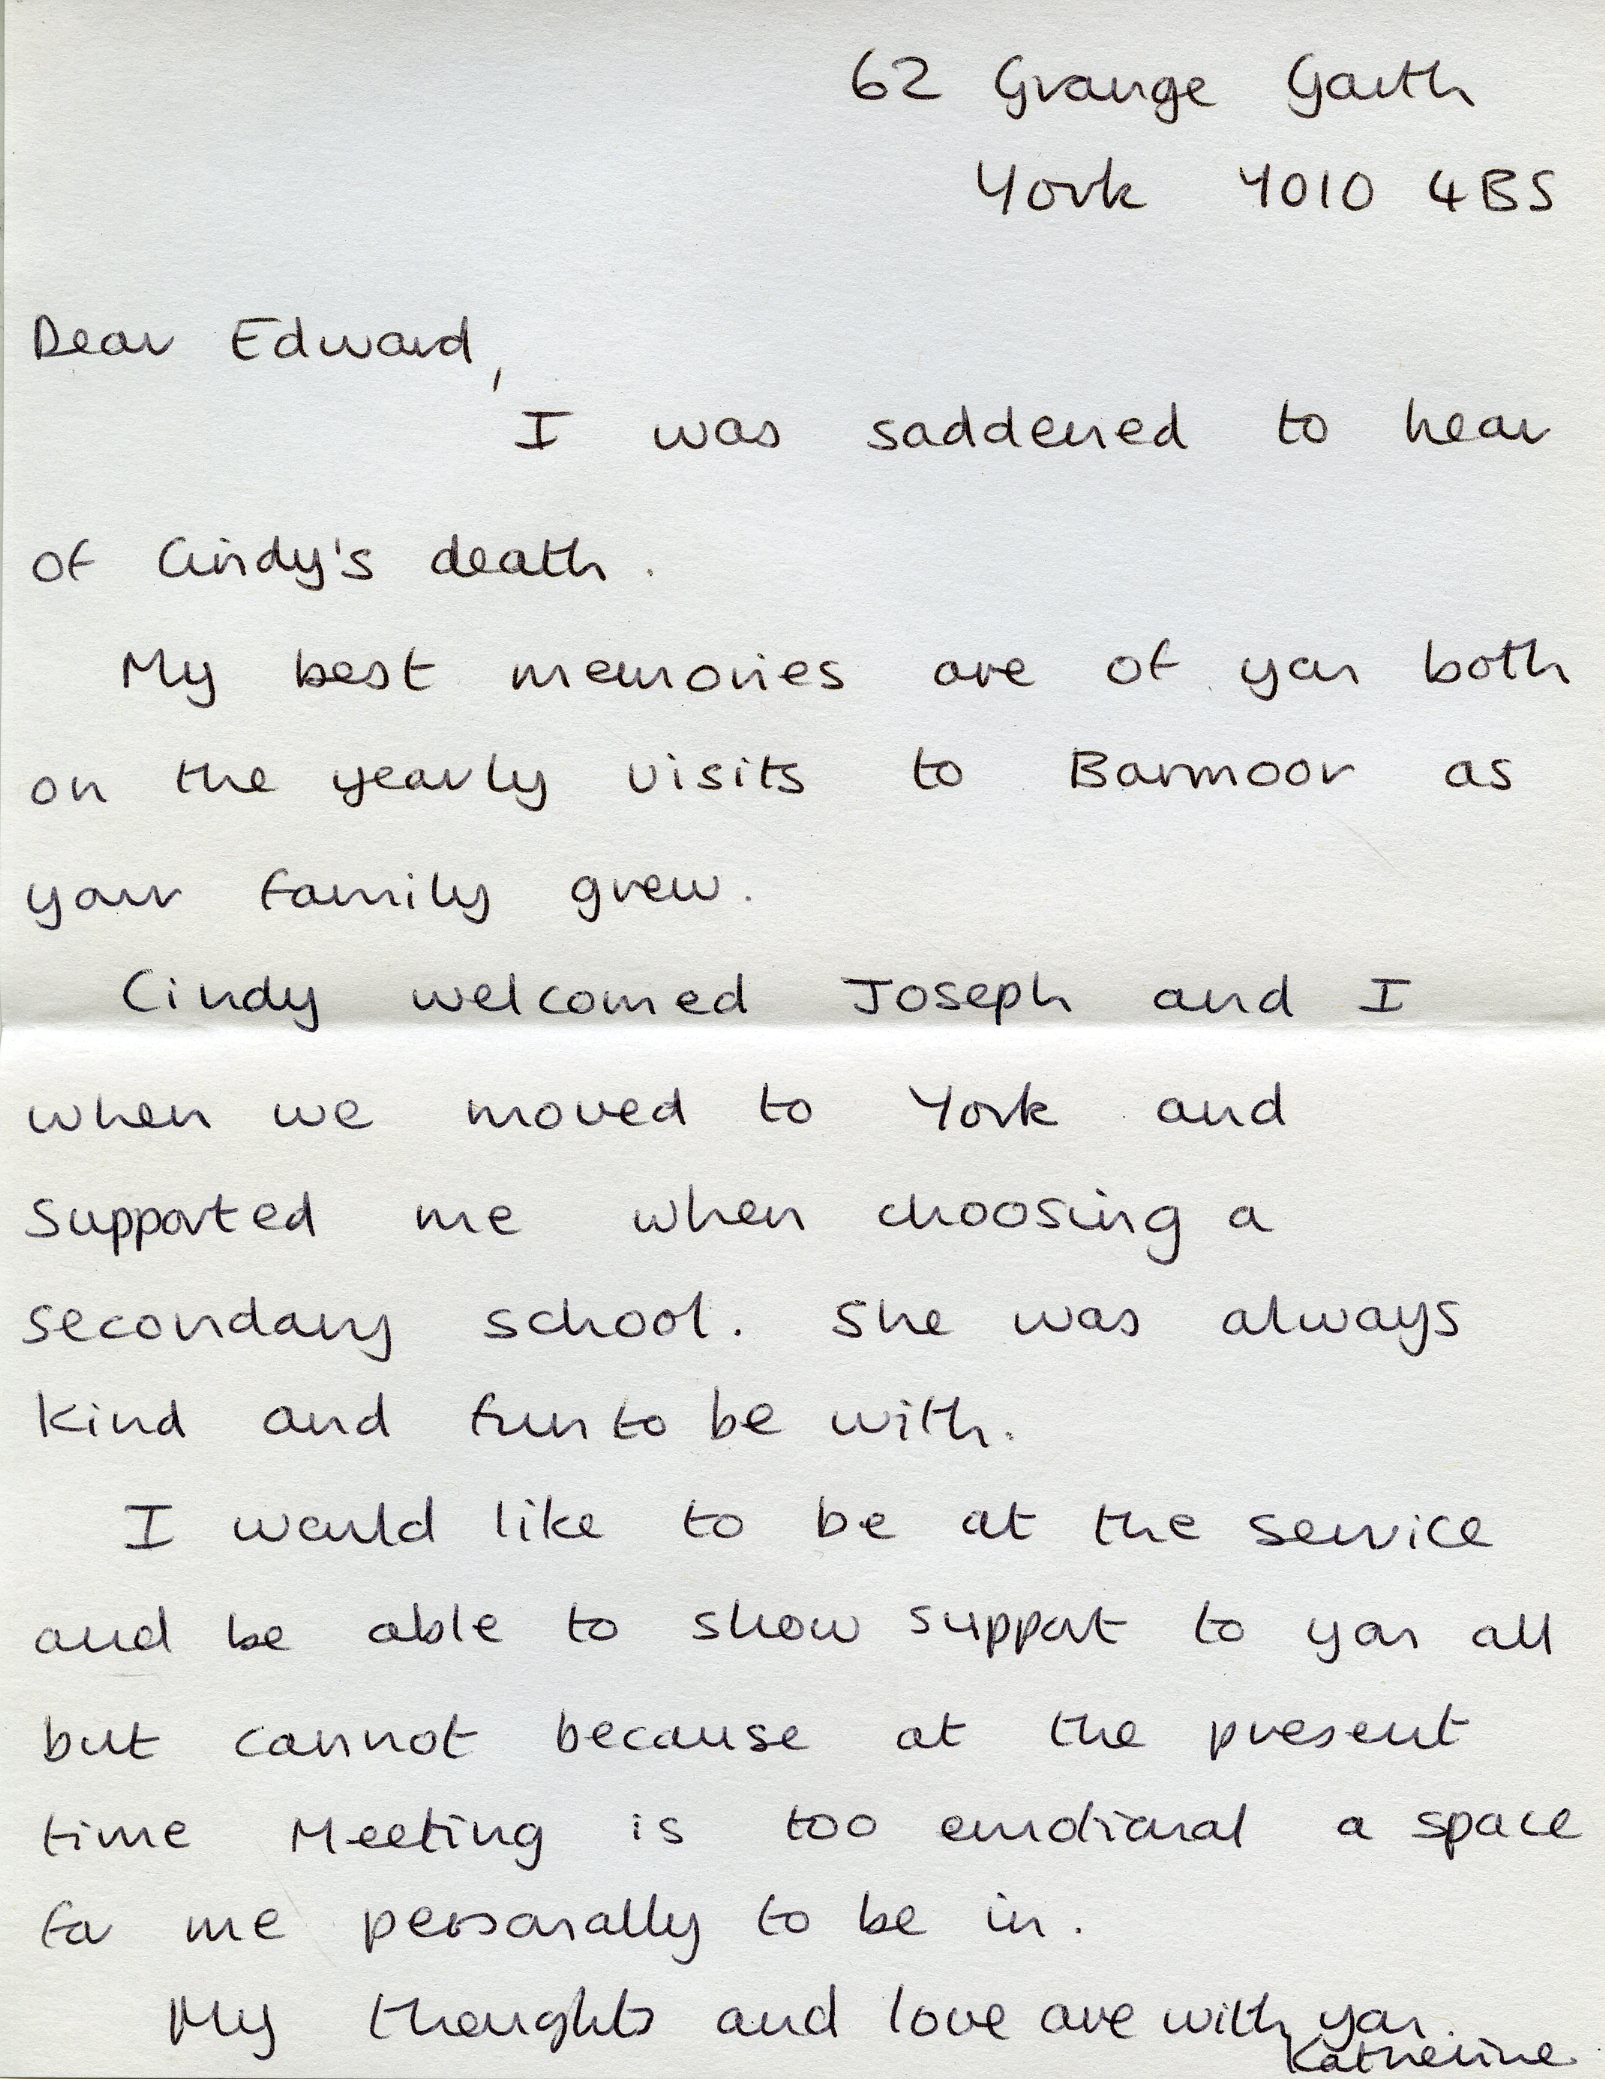 62 Grange Garth
York YO10 4BS
Dear Edward,
I was saddened to hear
of Cindy's death.
My best memories are of you both
on the yearly visits to Barmoor as
your family grew.
Cindy welcomed Joseph and I
when we moved to York and
supported me when choosing a
secondary school. She was always
kind and fun to be with.
I would like to be at the service
and be able to show support to you all
but cannot because at the present
time Meeting is too emotional a space
for me personally to be in.
My thoughts and love are with you.
Katherine